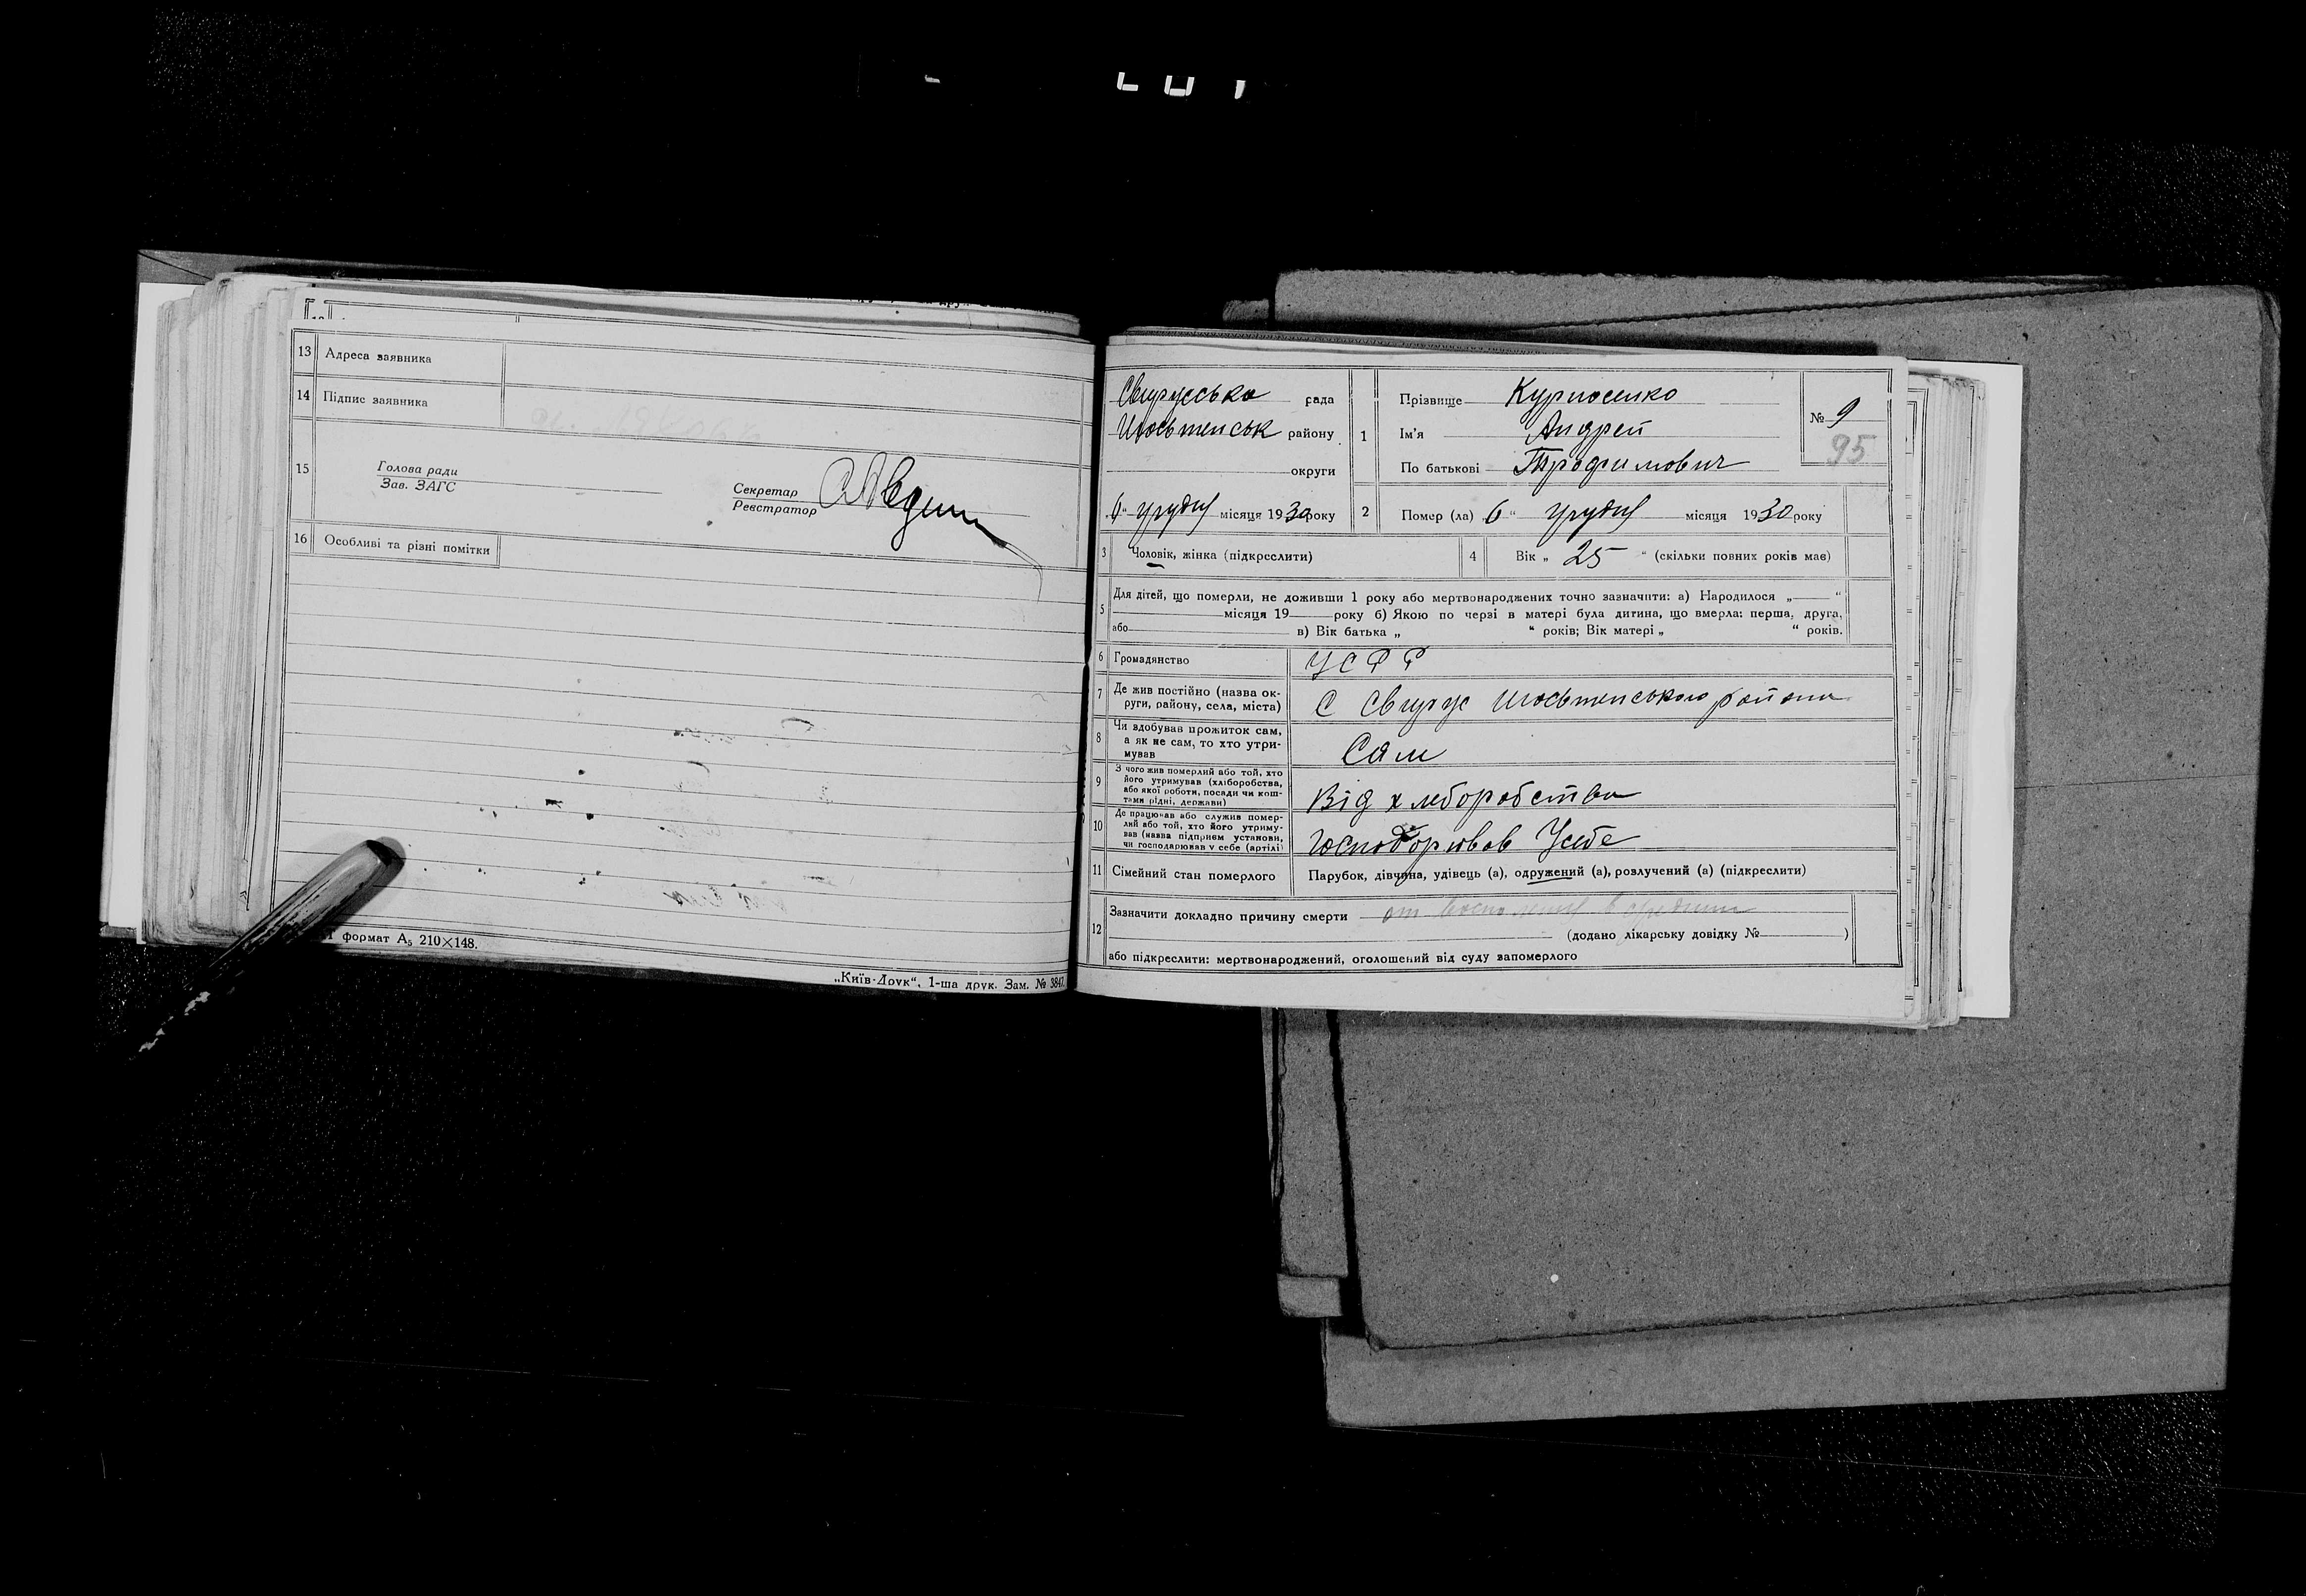 13 Адреса заявника
14 Підпис заявника
15 Голова ради
Зав. ЗАГС
Секретар
Реєстратор
16 Особливі та різні помітки
формат А5 210×148.
„Київ-Друк“, 1-ша друк. Зам. № 3847.
рада
району
округи
„6“ грудня місяця 1930 року
1 Прізвище Курносенко
Ім'я Андрей
По батькові Трофимович
№ 9
95
2 Помер (ла) „6“ грудня місяця 1930 року
3 Чоловік, жінка (підкреслити)
4 Вік „25“ (скільки повних років має)
5 Для дітей, що померли, не доживши 1 року або мертвонароджених точно зазначити: а) Народилося „ “
місяця 19 року б) Якою по черзі в матері була дитина, що вмерла: перша, друга,
або в) Вік батька „ “ років; Вік матері „ “ років.
6 Громадянство УСРР
7 Де жив постійно (назва ок-
руги, району, села, міста)
С района
8 Чи здобував прожиток сам,
а як не сам, то хто утри-
мував
Сам
9 З чого жив померлий або той, хто
його утримував (хліборобства,
або якої роботи, посади чи кош-
тами рідні, держави)
Від хлеборобства
10 Де працював або служив помер-
лий або той, хто його утриму-
вав (назва підприєм установи,
чи господарював у себе (артілі)
Господорював Усебе
11 Сімейний стан померлого
Парубок, дівчина, удівець (а), одружений (а), розлучений (а) (підкреслити)
12 Зазначити докладно причину смерти от
(додано лікарську довідку № )
або підкреслити: мертвонароджений, оголошений від суду запомерлого